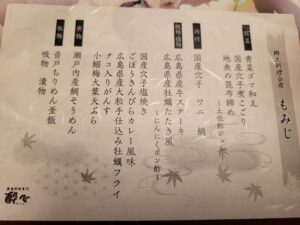 郷土料理会席
もみじ
前菜
青菜ゴマ和え
国産穴子煮こごり
地魚の昆布締め
〜土佐酢ジュレ〜
向付
国産穴子 ワニ 鯛
焼物・揚物
広島県産牛ステーキ
広島県産牡蠣たたき風
〜にんにくポン酢〜
国産穴子塩焼き
ごぼうきんぴらカレー風味
広島県産大粒手仕込み牡蠣フライ
タコ入りがんす
小鰯梅大葉天ぷら
煮物
瀬戸内産鯛そうめん
飯物
音戸ちりめん釜飯
吸物 漬物
酔心